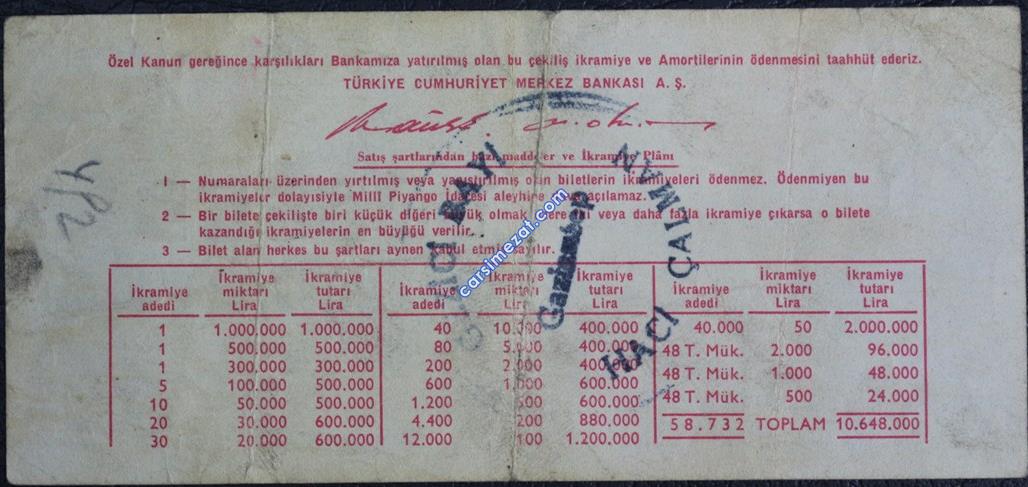 Özel Kanun gereğince karşılıkları Bankamıza yatırılmış olan bu çekiliş ikramiye ve Amortilerinin ödenmesini taahhüt ederiz.
TÜRKİYE CUMHURİYET MERKEZ BANKASI A. Ş.
Satış şartlarından bazı maddeler ve İkramiye Plânı
1 — Numaraları üzerinden yırtılmış veya yapıştırılmış olan biletlerin ikramiyeleri ödenmez. Ödenmiyen bu
ikramiyeler dolayısiyle Millî Piyango İdaresi aleyhine dava açılamaz.
2 — Bir bilete çekilişte biri küçük diğeri büyük olmak üzere iki veya daha fazla ikramiye çıkarsa o bilete
kazandığı ikramiyelerin en büyüğü verilir.
3 — Bilet alan herkes bu şartları aynen kabul etmiş sayılır.
İkramiye adedi İkramiye miktarı Lira İkramiye tutarı Lira İkramiye adedi İkramiye miktarı Lira İkramiye tutarı Lira İkramiye adedi İkramiye miktarı Lira İkramiye tutarı Lira
1 1.000.000 1.000.000 40 10.000 400.000 40.000 50 2.000.000
1 500.000 500.000 80 5.000 400.000 48 T. Mük. 2.000 96.000
1 300.000 300.000 200 2.000 400.000 48 T. Mük. 1.000 48.000
5 100.000 500.000 600 1.000 600.000 48 T. Mük. 500 24.000
10 50.000 500.000 1.200 500 600.000
20 30.000 600.000 4.400 200 880.000 58.732 TOPLAM 10.648.000
30 20.000 600.000 12.000 100 1.200.000
BAYİ
Gaziantep
HACI ÇALMAN
carsimezat.com